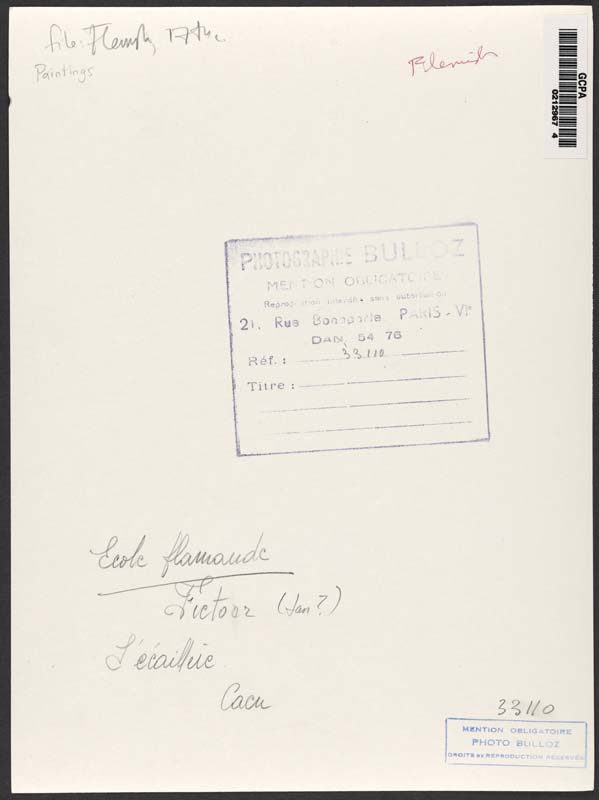 file: Flemish 17th c
Paintings
Flemish
GCPA
0212967 4
PHOTOGRAPHIE BULLOZ
MENTION OBLIGATOIRE
Reproduction interdite sans autorisation
21, Rue Bonaparte, PARIS - VIe
DAN. 54 76
Réf. : 33110
Titre :
Ecole flamande
Fictoor (Jan?)
L'écaillère
Caen
33110
MENTION OBLIGATOIRE
PHOTO BULLOZ
DROITS DE REPRODUCTION RÉSERVÉS